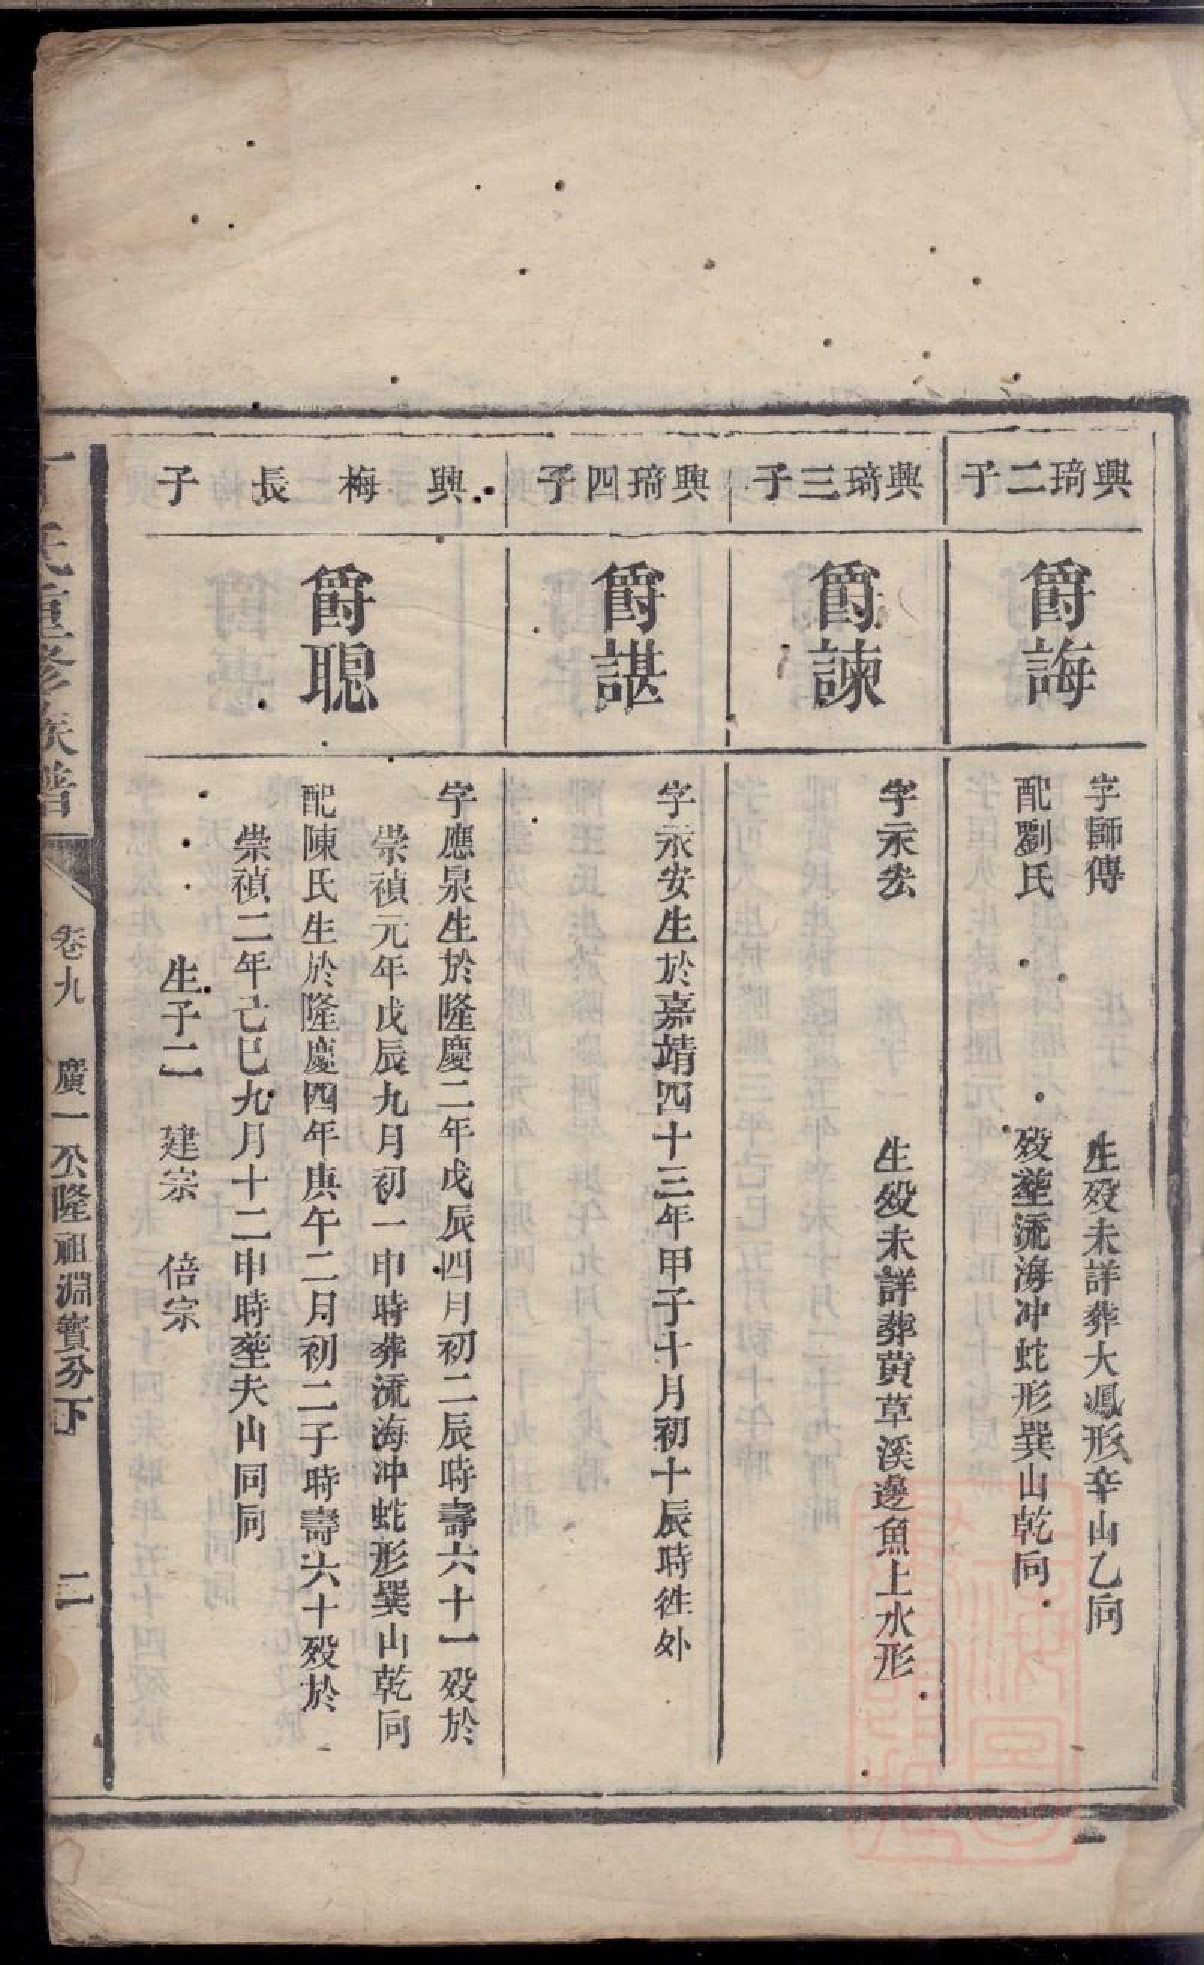 興琦二子
爵誨
字師傳　生殁未詳葬大鳳形辛山乙向
配劉氏　殁塟流海冲蛇形巽山乾向
興琦三子
爵諫
字永宏　生殁未詳葬黄草溪邊魚上水形
興琦四子
爵諶
字永安生於嘉靖四十三年甲子十月初十辰時徃外
興梅長子
爵聰
字應泉生於隆慶二年戊辰四月初二辰時壽六十一殁於
崇禎元年戊辰九月初一申時葬流海冲蛇形巽山乾向
配陳氏生於隆慶四年庚午二月初二子時壽六十殁於
崇禎二年己巳九月十二申時塟夫山同向
生子二　建宗　倍宗
氏重修族譜
卷九　廣一公隆祖淵寳分下　二